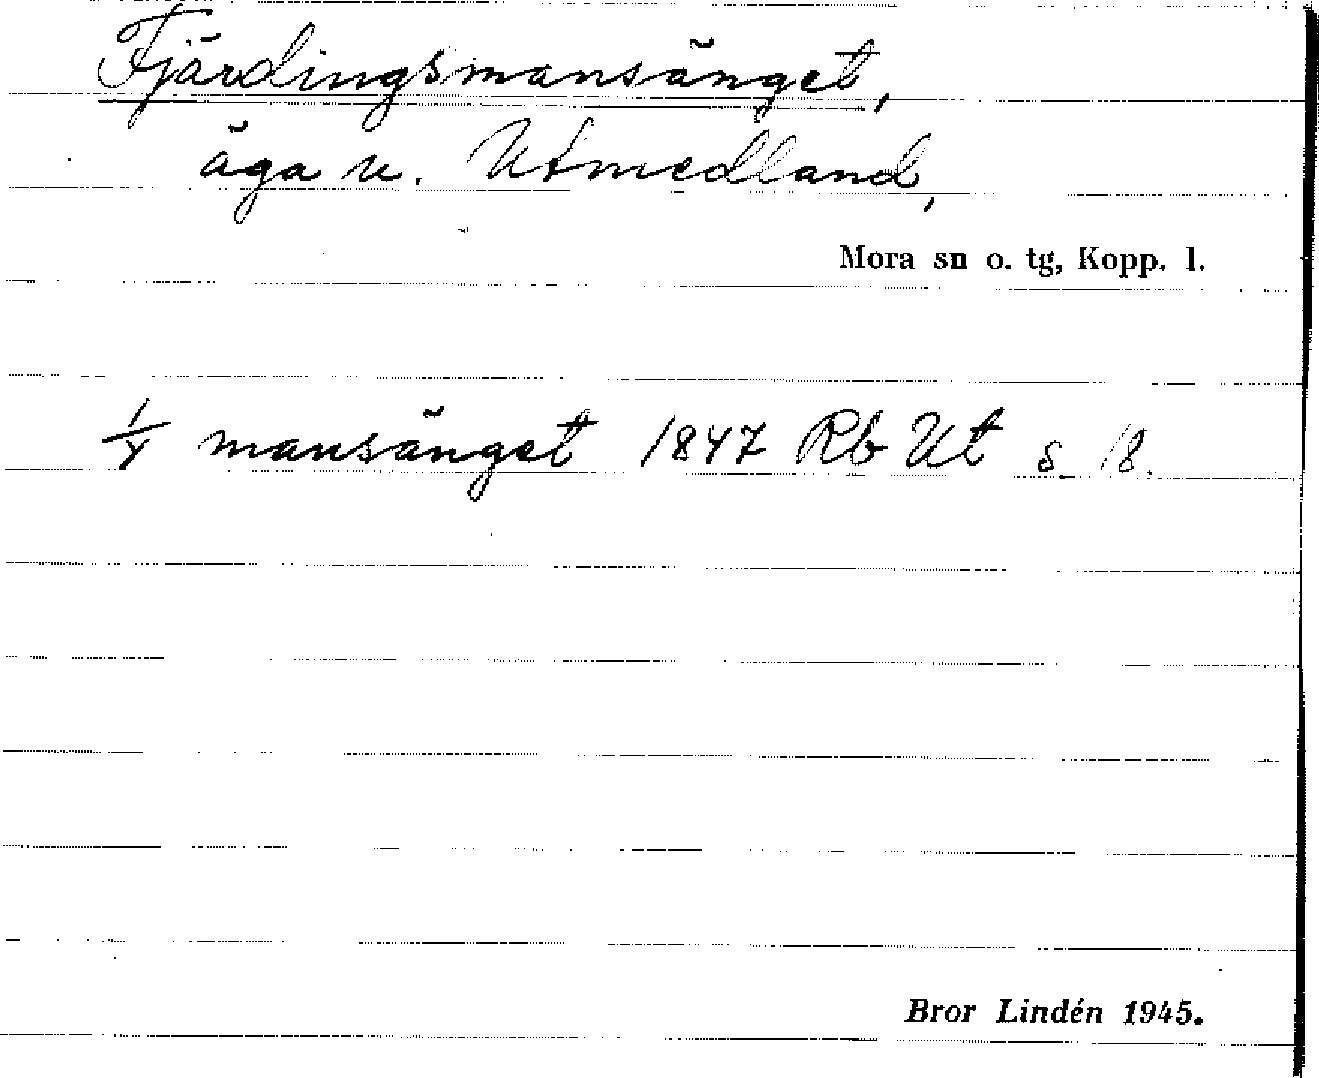 Fjärdingsmansänget,
äga u. Utmedland,
Mora sn o. tg, Kopp. l.
1/4 mansänget 1847 Rb Ut s 18.
Bror Lindén 1945.